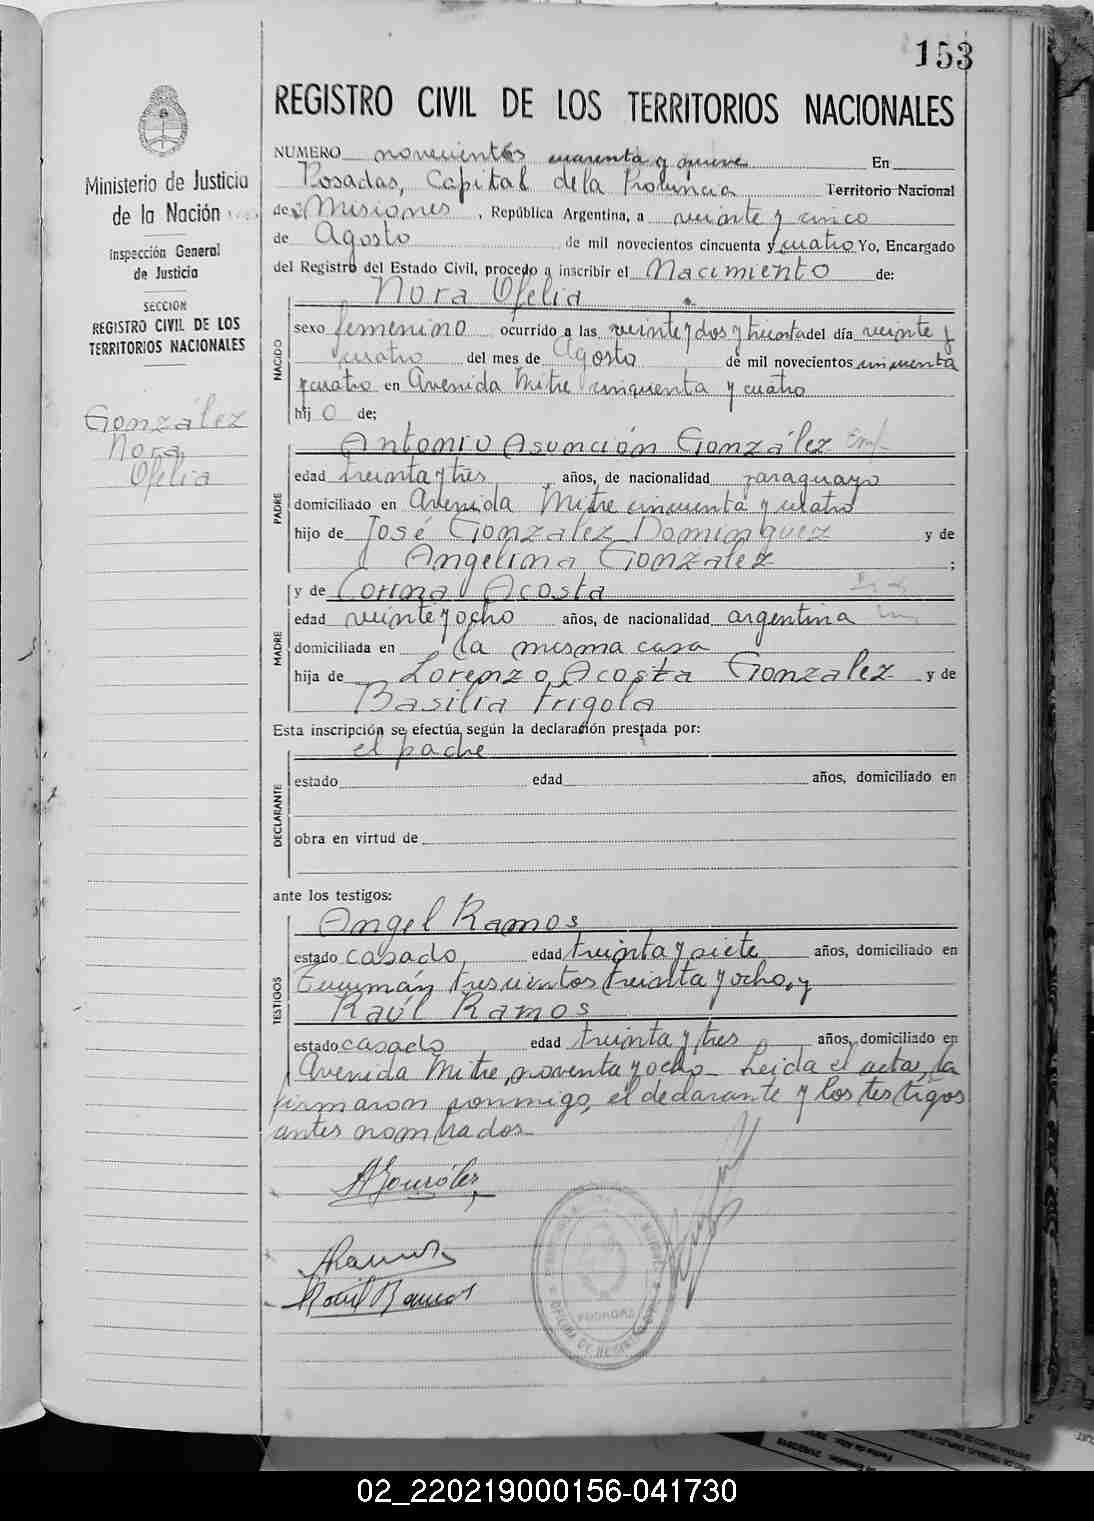 153
REGISTRO CIVIL DE LOS TERRITORIOS NACIONALES
Ministerio de Justicia
de la Nación
Inspección General
de Justicia
SECCION
REGISTRO CIVIL DE LOS
TERRITORIOS NACIONALES
González
Nora
Ofelia
NUMERO novecientos cuarenta y nueve En
Posadas, Capital de la Provincia Territorio Nacional
de Misiones, República Argentina, a veinte y cinco
de Agosto de mil novecientos cincuenta y cuatro Yo, Encargado
del Registro del Estado Civil, procedo a inscribir el Nacimiento de:
Nora Ofelia
NACIDO
sexo femenino ocurrido a las veinte y dos y treinta del día veinte y
cuatro del mes de Agosto de mil novecientos cincuenta
y cuatro en Avenida Mitre cinquenta y cuatro
hij o de;
PADRE
Antonio Asunción González
edad treinta y tres años, de nacionalidad paraguayo
domiciliado en Avenida Mitre cincuenta y cuatro
hijo de José González Dominguez y de
Angelina González ;
MADRE
y de Corina Acosta
edad veinte y ocho años, de nacionalidad argentina
domiciliada en la misma casa
hija de Lorenzo Acosta Gonzalez y de
Basilia Frigola
Esta inscripción se efectúa según la declaración prestada por:
DECLARANTE
el padre
estado edad años, domiciliado en
obra en virtud de
ante los testigos:
TESTIGOS
Angel Ramos
estado casado, edad treinta y siete años, domiciliado en
Tucumán trescientos treinta y ocho, y
Raúl Ramos
estado casado edad treinta y tres años, domiciliado en
Avenida Mitre noventa y ocho_ Leida el acta, la
firmaron conmigo, el declarante y los testigos
antes nombrados_
AGonzález
ARamos
Raúl Ramos
POSADAS
02_220219000156-041730